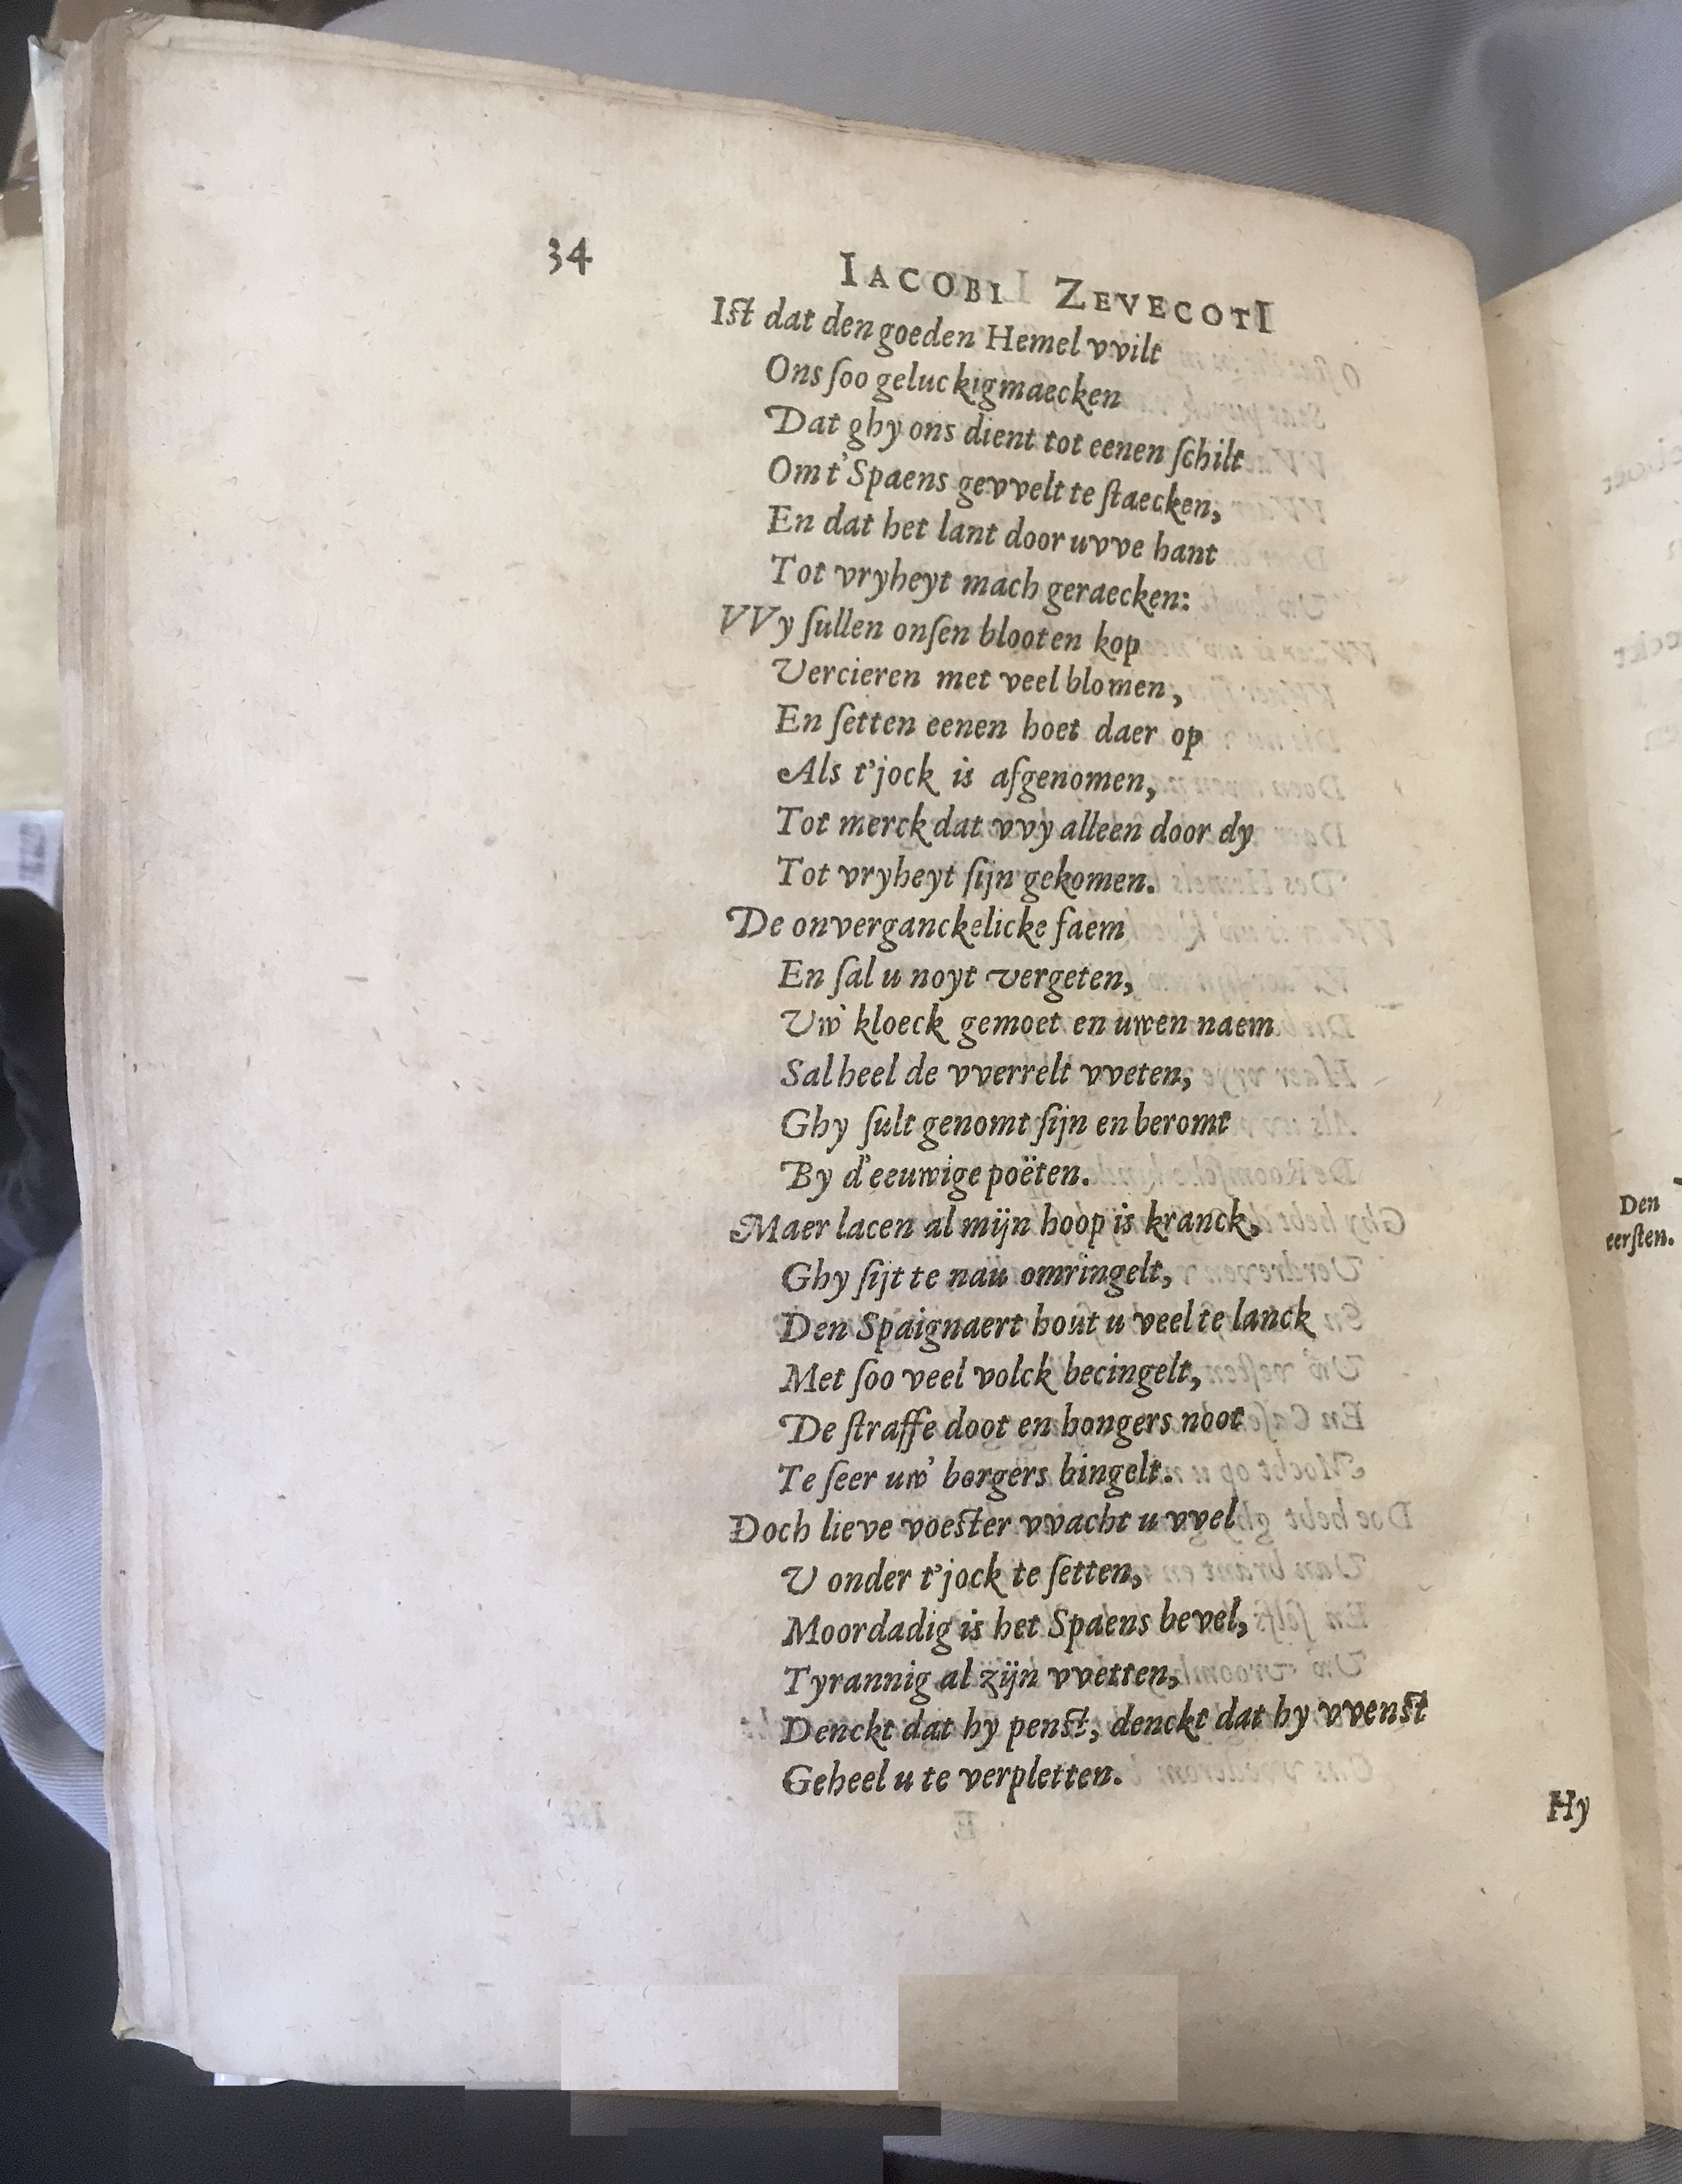 34
IACOBI ZEVECOTI
Ist dat den goeden Hemel vvilt
Ons ſoo geluckig maecken
Dat ghy ons dient tot eenen ſchilt
Om t'Spaens gevvelt te ſtaecken,
En dat het lant door uvve hant
Tot vryheyt mach geraecken:
VVy ſullen onſen blooten kop
Vercieren met veel blomen,
En ſetten eenen hoet daer op
Als t'jock is afgenomen,
Tot merck dat vvy alleen door dy
Tot vryheyt ſijn gekomen.
De onverganckelicke faem
En ſal u noyt vergeten,
Uw' kloeck gemoet en uwen naem
Sal heel de vverrelt vveten,
Ghy ſult genomt ſijn en beromt
By d'eeuwige poëten.
Maer lacen al mijn hoop is kranck,
Ghy ſijt te nau omringelt,
Den Spaignaert hout u veel te lanck
Met ſoo veel volck becingelt,
De ſtraffe doot en hongers noot
Te ſeer uw' borgers hingelt.
Doch lieve voester vvacht u vvel
U onder t'jock te ſetten,
Moordadig is het Spaens bevel,
Tyrannig al zijn vvetten,
Denckt dat hy penst, denckt dat hy vvenst
Geheel u te verpletten.
Hy
Den
eerſten.